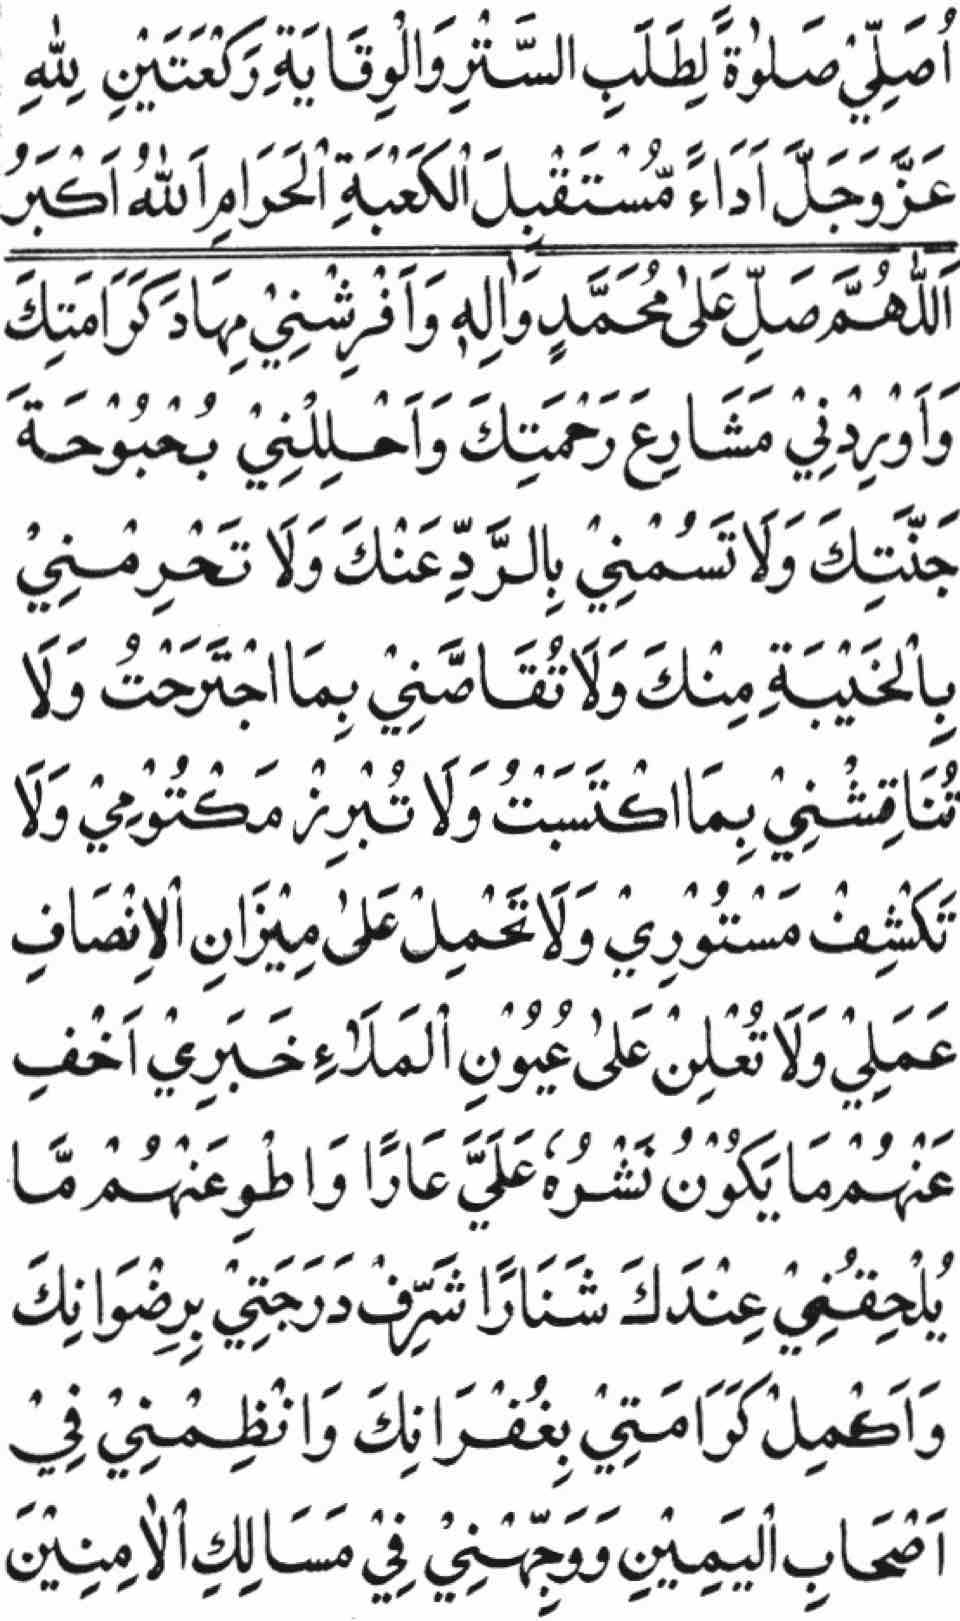 اُصَلِّيْ صَلٰوةً لِطَلَبِ السَّتْرِ وَالْوِقَايَةِ رَكْعَتَيْنِ لِلّٰهِ
عَزَّ وَجَلَّ اَدَاءً مُّسْتَقْبِلَ الْكَعْبَةِ الْحَرَامِ اَللّٰهُ اَكْبَرُ
اَللّٰهُمَّ صَلِّ عَلٰى مُحَمَّدٍ وَّاٰلِهٖ وَاَفْرِشْنِيْ مِهَادَ كَرَامَتِكَ
وَاَوْرِدْنِيْ مَشَارِعَ رَحْمَتِكَ وَاَحْلِلْنِيْ بُحْبُوْحَةَ
جَنَّتِكَ وَلَا تَسُمْنِيْ بِالرَّدِّ عَنْكَ وَلَا تَحْرِمْنِيْ
بِالْخَيْبَةِ مِنْكَ وَلَا تُقَاصَّنِيْ بِمَا اجْتَرَحْتُ وَلَا
تُنَاقِشْنِيْ بِمَا اكْتَسَبْتُ وَلَا تُبْرِزْ مَكْتُوْمِيْ وَلَا
تَكْشِفْ مَسْتُوْرِيْ وَلَا تَحْمِلْ عَلٰى مِيْزَانِ الْاِنْصَافِ
عَمَلِيْ وَلَا تُعْلِنْ عَلٰى عُيُوْنِ الْمَلَاءِ خَبَرِيْ اَخْفِ
عَنْهُمْ مَا يَكُوْنُ نَشْرُهٗ عَلَيَّ عَارًا وَاطْوِ عَنْهُمْ مَّا
يُلْحِقُنِيْ عِنْدَكَ شَنَارًا شَرِّفْ دَرَجَتِيْ بِرِضْوَانِكَ
وَاَكْمِلْ كَرَامَتِيْ بِغُفْرَانِكَ وَانْظِمْنِيْ فِيْ
اَصْحَابِ الْيَمِيْنِ وَوَجِّهْنِيْ فِيْ مَسَالِكِ الْاٰمِنِيْنَ